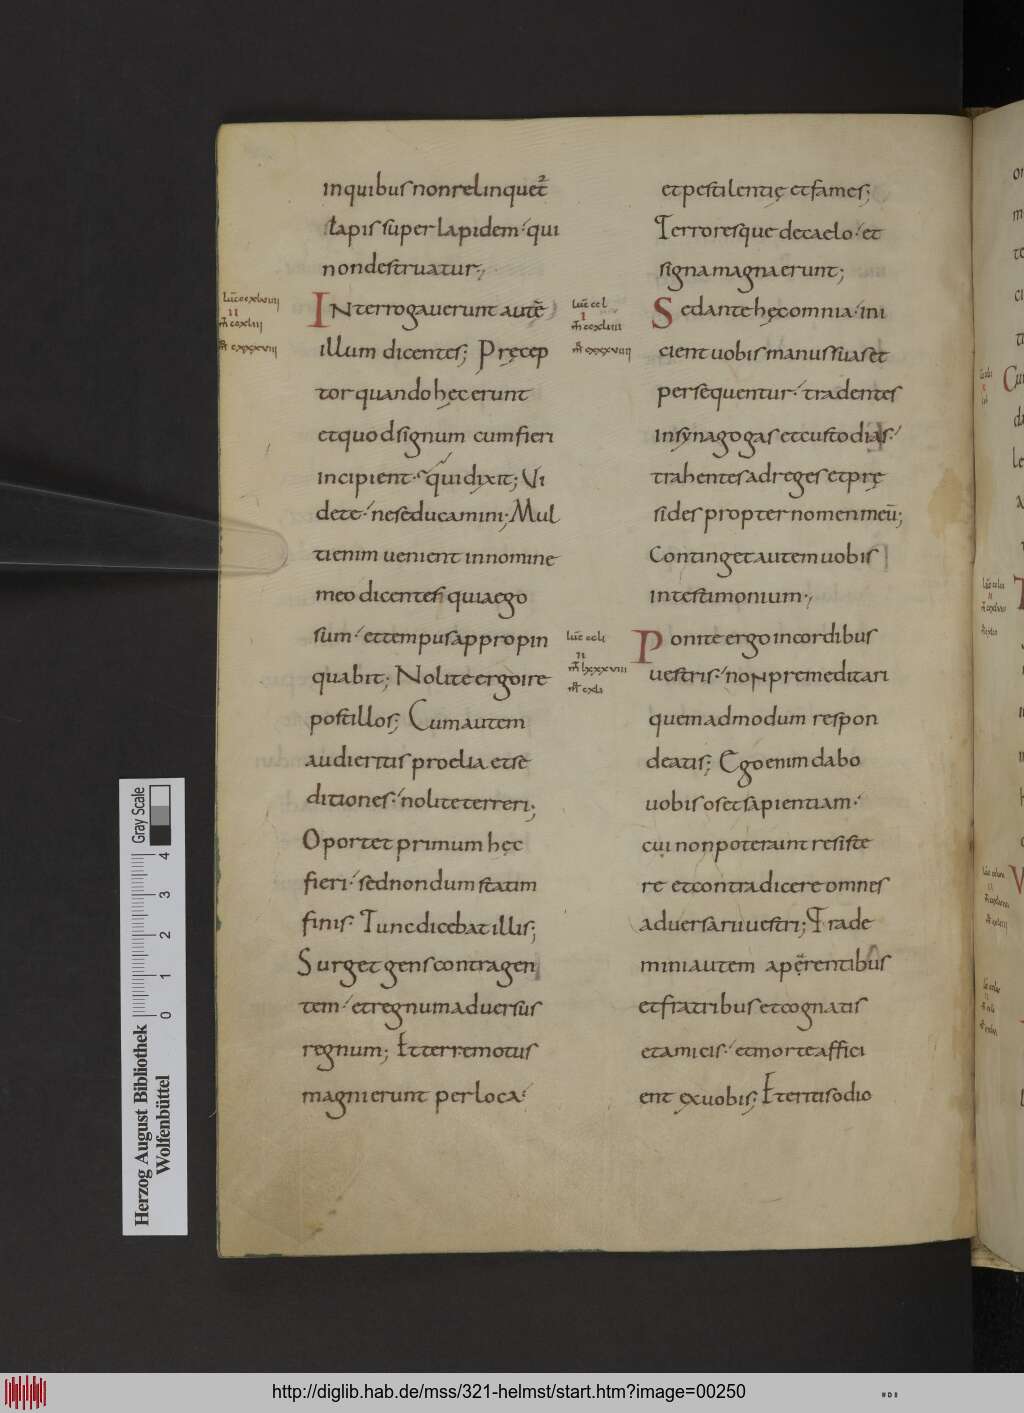 in quibus non relinquet᷑
lapis super lapidem· qui
non destruatur·,
INterrogauerunt autē
illum dicentes; Pręcep
tor quando hęc erunt
et quod signum cum fieri
incipient· qui dixit; Vi
dete· ne seducamini; Mul
ti enim uenient in nomine
meo dicentes quia ego
sum· et tempus appropin
quabit; Nolite ergo ire
post illos; Cum autem
audieritis proelia et se
ditiones· nolite terreri;
Oportet primum hęc
fieri· sed nondum statim
finis· Tunc dicebat illis;
Surget gens contra gen
tem· et regnum aduersus
regnum; Et terremotus
magni erunt per loca·
et pestilentię et fames;
Terroresque de caelo· et
signa magna erunt;
Sed ante hęc omnia· ini
cient uobis manus suas et
persequentur· tradentes
in synagogas et custodias·
trahentes ad reges et prę
sides propter nomen meū;
Continget autem uobis
in testimonium·,
Ponite ergo in cordibus
uestris· noN premeditari
quemadmodum respon
deatis; Ego enim dabo
uobis os et sapientiam·
cui non poterunt resiste
re et contradicere omnes
aduersarii uestri; Trade
mini autem a parentibus
et fratribus et cognatis
et amicis· et morte affici
ent ex uobis; Et eritis odio
Gray Scale
0 1 2 3 4
Herzog August Bibliothek
Wolfenbüttel
http://diglib.hab.de/mss/321-helmst/start.htm?image=00250